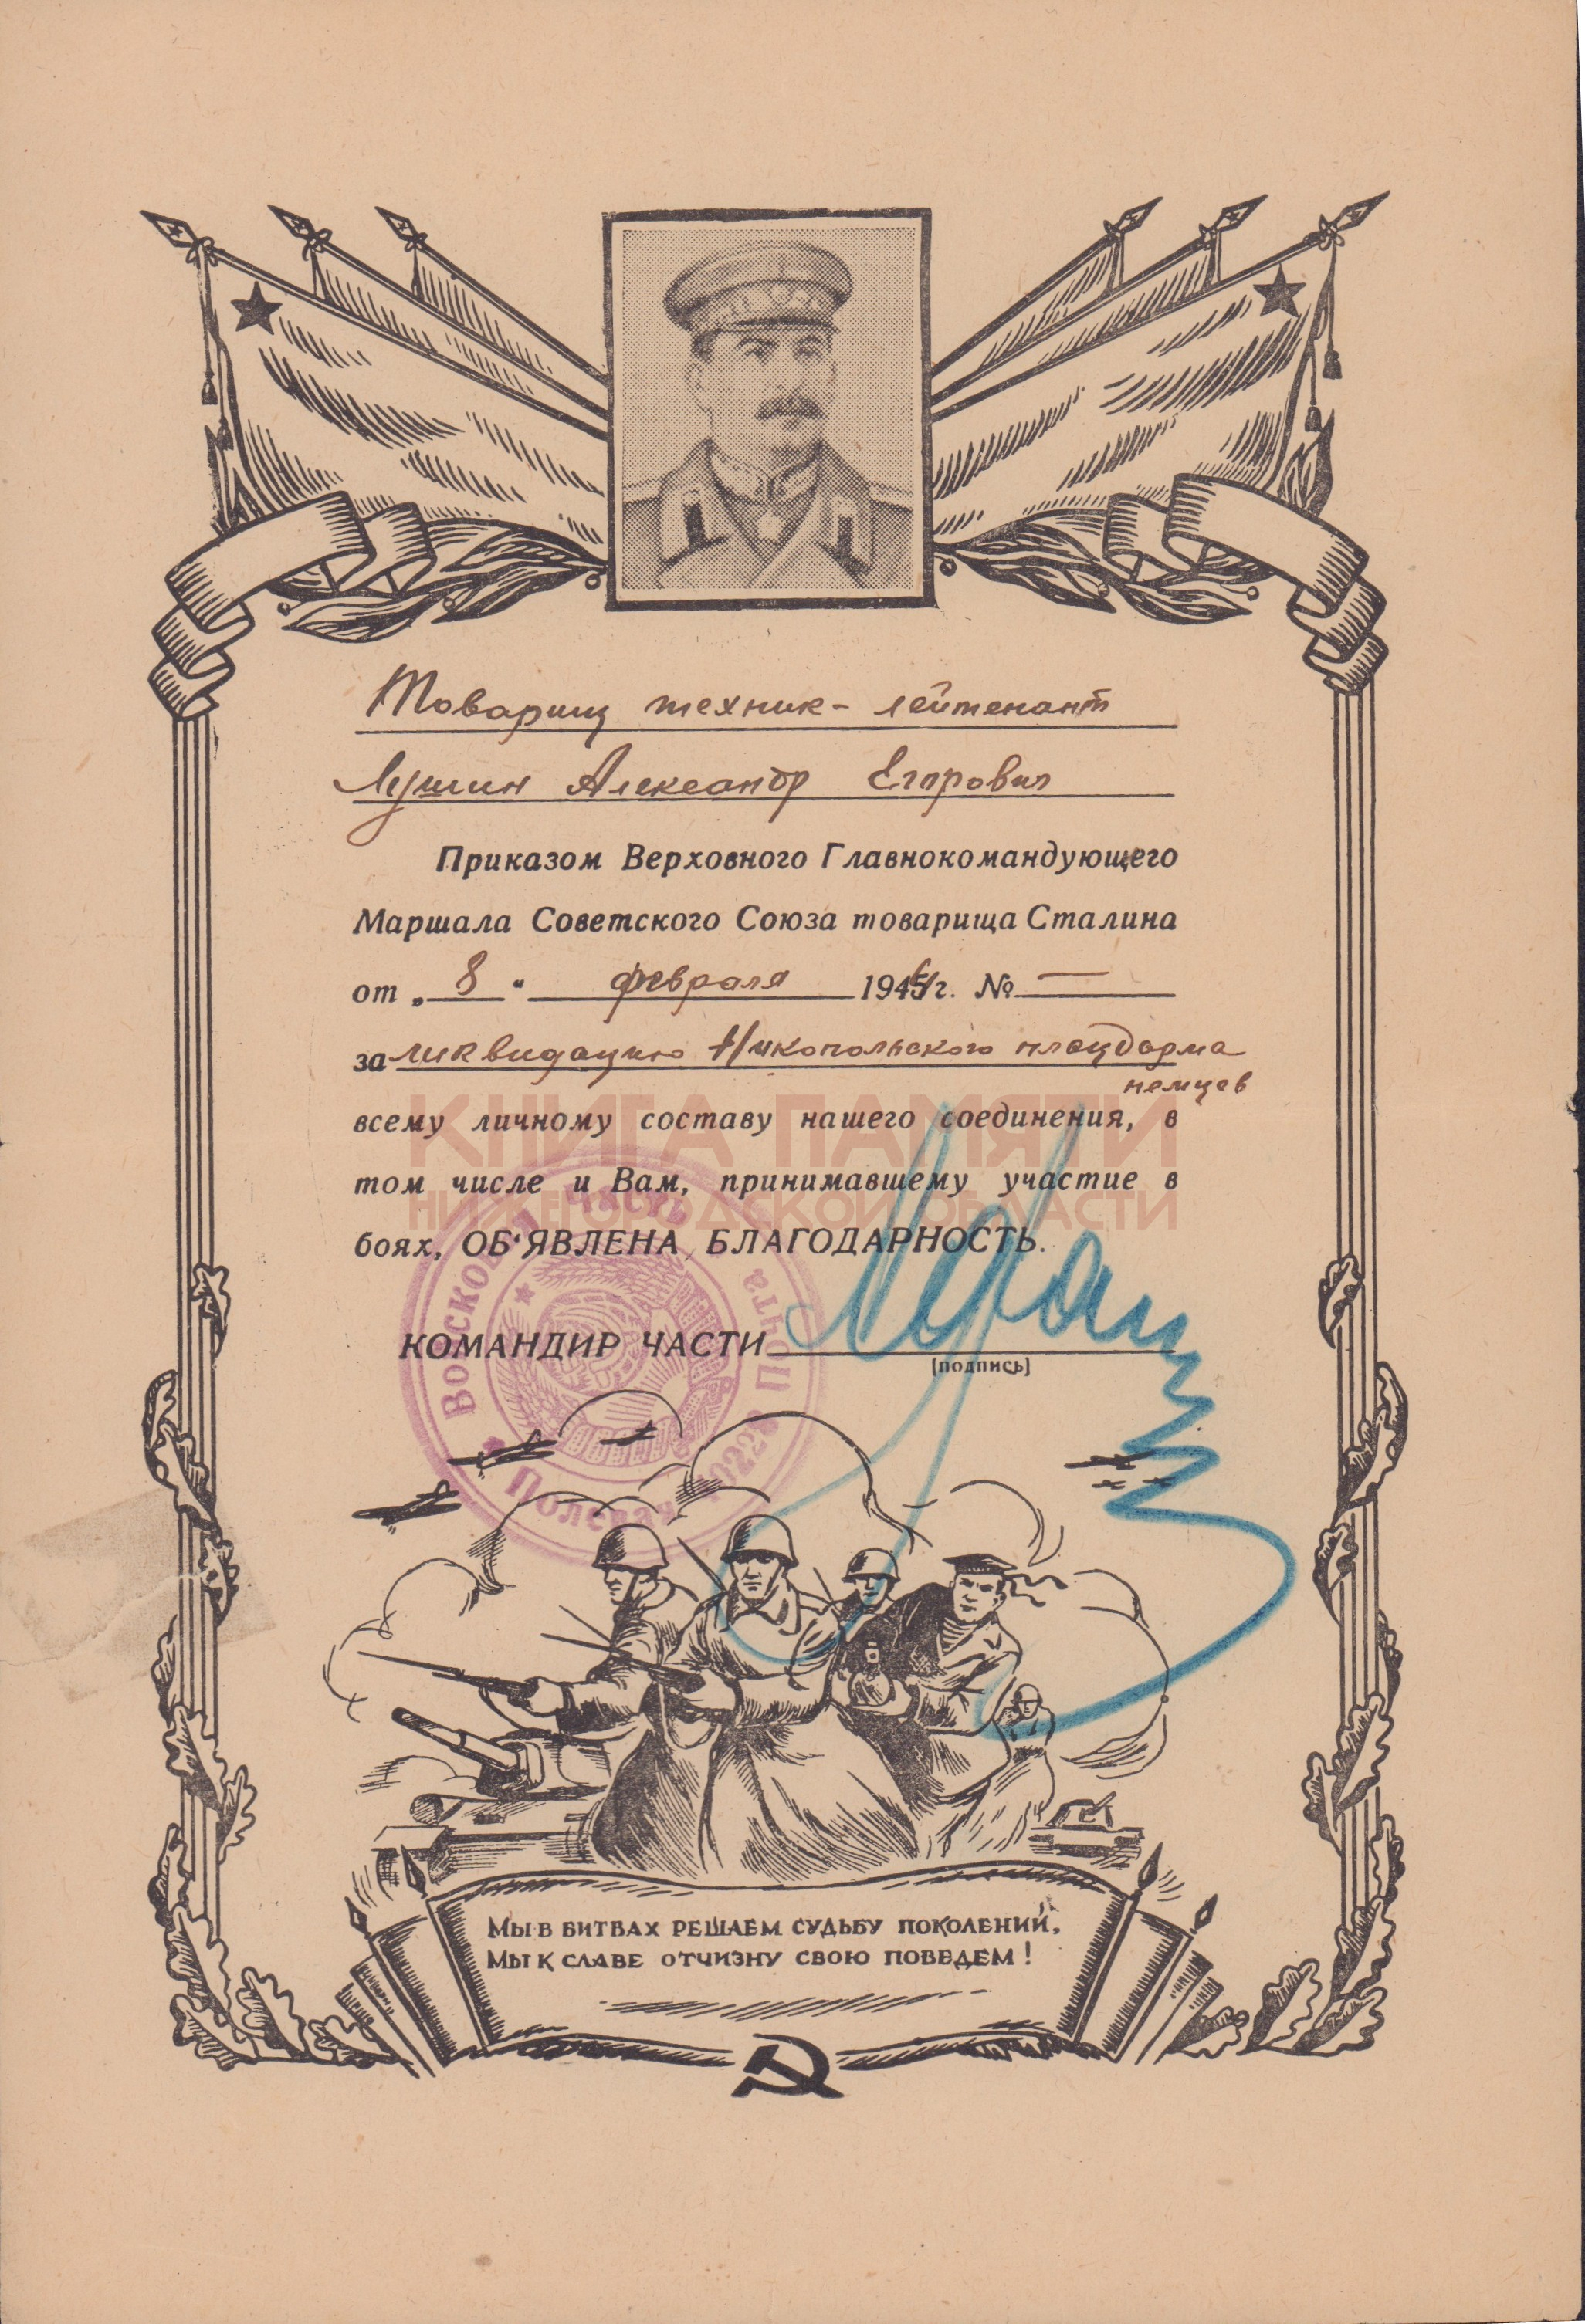 Товарищ техник-лейтенант
Лушин Александр Егорович
Приказом Верховного Главнокомандующего
Маршала Советского Союза товарища Сталина
от „8“ февраля 1944г. № —
за ликвидацию Никопольского плацдарма
немцев
КНИГА ПАМЯТИ
всему личному составу нашего соединения, в
том числе и Вам, принимавшему участие в
НИЖЕГОРОДСКОЙ ОБЛАСТИ
боях, ОБ‘ЯВЛЕНА БЛАГОДАРНОСТЬ.
КОМАНДИР ЧАСТИ
(подпись)
Полевая Почта
МЫ В БИТВАХ РЕШАЕМ СУДЬБУ ПОКОЛЕНИЙ,
МЫ К СЛАВЕ ОТЧИЗНУ СВОЮ ПОВЕДЕМ!